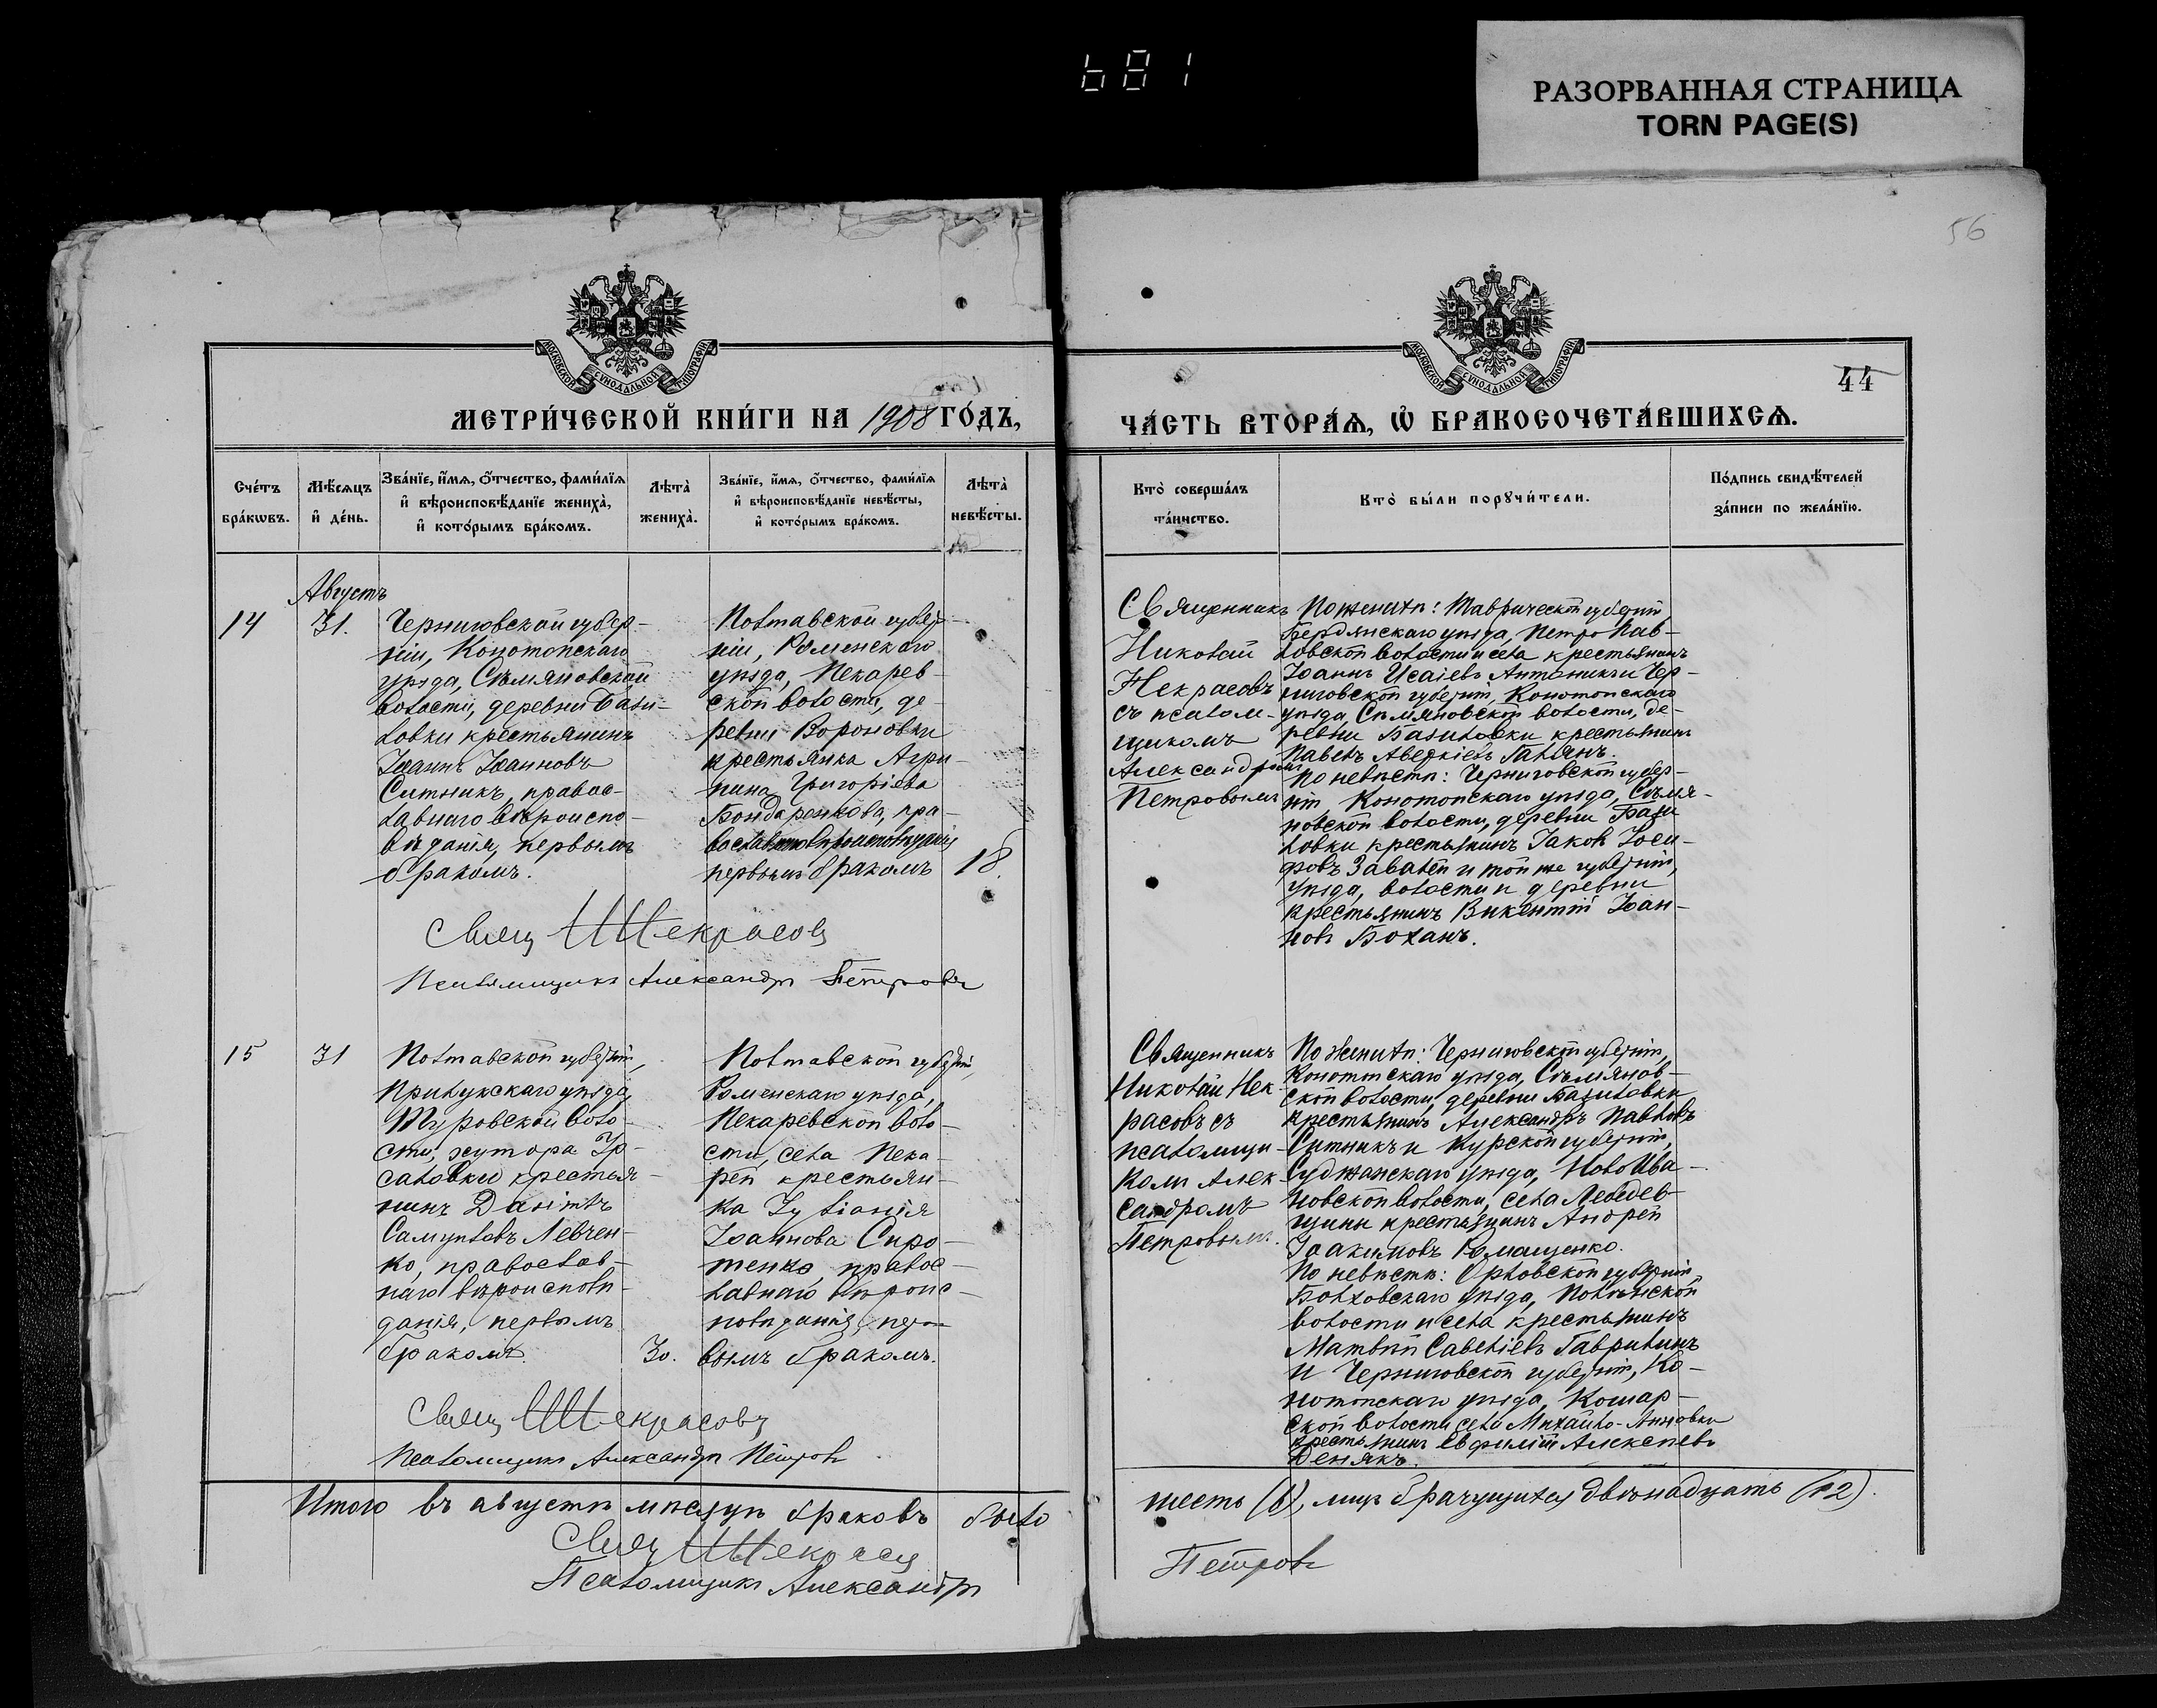 681
РАЗОРВАННАЯ СТРАНИЦА
TORN PAGE(S)
56
МОСКОВСКОЙ СѴНОДАЛЬНОЙ ТИПОГРАФІИ
МОСКОВСКОЙ СѴНОДАЛЬНОЙ ТИПОГРАФІИ
44
МЕТРИ́ЧЕСКОЙ КНИ́ГИ НА 1908 ГО́ДЪ,
ЧА́СТЬ ВТОРА́Ѧ, Ѡ҆ БРАКОСОЧЕТА́ВШИХСѦ.
Сче́тъ
бра́кѡвъ.
Мѣ́сѧцъ
и҆ де́нь.
Зва́нїе, и҆́мѧ, ѻ҆́тчество, фами́лїѧ
и҆ вѣроисповѣ́данїе жениха̀,
и҆ кото́рымъ бра́комъ.
Лѣ́та̀
жениха̀.
Зва́нїе, и҆́мѧ, ѻ҆́тчество, фами́лїѧ
и҆ вѣроисповѣ́данїе невѣ́сты,
и҆ кото́рымъ бра́комъ.
Лѣ́та̀
невѣ́сты.
Кто̀ соверша́лъ
та́инство.
Кто̀ бы́ли порꙋчи́тели.
По́дпись свидѣ́телей
за́писи по жела́нїю.
Августъ
14
31.
Черниговской губер-
ніи, Конотопскаго
уѣзда, Смѣляновской
волости, деревни Бази-
ловки крестьянинъ
Іоаннъ Іоанновъ
Ситникъ, правос-
лавнаго вѣроиспо-
вѣданія, первымъ
бракомъ.
Полтавской губер-
ніи, Роменскаго
уѣзда, Пекарев-
ской волости, де-
ревни Вороновки
крестьянка Агри-
пина Григоріева
Бондаренкова, пра-
вославнаго вѣроисповѣданія
первымъ бракомъ
18.
Свящ Н Некрасовъ
Псаломщикъ Александръ Петровъ
Священникъ
Николай
Некрасовъ
съ псалом-
щикомъ
Александромъ
Петровымъ
По женихѣ: Таврической губерніи
Бердянскаго уѣзда, Петро Пав-
ловской волости и села крестьянинъ
Іоаннъ Исаіевъ Антоник и Чер-
ниговской губерніи, Конотопскаго
уѣзда, Смѣляновской волости, де-
ревни Базиловки крестьянинъ
Павелъ Аверкіевъ
По невѣстѣ: Черниговской губер-
ніи, Конотопскаго уѣзда, Смѣля-
новской волости, деревни Бази
ловки крестьянинъ Іаков Іоси-
фовъ Завалей и той же губерніи,
уѣзда, волости и деревни
крестьянинъ Викентій Іоан-
новъ Боханъ.
15
31
Полтавской губерніи,
Прилукскаго уѣзда,
Журовской воло-
сти, хутора
крестья-
нинъ Даніилъ
Самуиловъ Левчен-
ко, православ-
наго вѣроисповѣ-
данія, первымъ
бракомъ.
30.
Полтавской губерніи,
Роменскаго уѣзда,
Пекаревской воло-
сти, села Пека-
рей крестьян-
ка Іуліанія
Іоаннова Сиро-
тенко, правос-
лавнаго вѣроис-
повѣданія, пер-
вымъ бракомъ.
Свящ Н Некрасовъ
Псаломщикъ Александръ Петровъ
Священникъ
Николай Нек-
расовъ съ
псаломщи-
комъ Алек-
сандромъ
Петровымъ.
По женихѣ: Черниговской губерніи,
Конотопскаго уѣзда, Смѣлянов-
ской волости, деревни Базиловки
крестьянинъ Александръ Павловъ
Ситникъ и Курской губерніи,
Суджанскаго уѣзда, Ново Ива-
новской волости, села Лебедев-
щины крестьянинъ Андрей
Іоакимовъ Ромащенко.
По невѣстѣ: Орловской губерніи,
Болховскаго уѣзда,
волости и села крестьянинъ
Матвѣй Савеліевъ Гаврилинъ
и Черниговской губерніи, Ко-
нотопскаго уѣзда, Кошар-
ской волости села Михайло-Анновки
крестьянинъ Евфимій Алексѣевъ
Денякъ.
Итого въ августѣ мѣсяцѣ браковъ было
шесть (6), лицъ брачущихся двѣнадцать (12).
Свящ Н Некрасовъ
Псаломщикъ Александръ
Петровъ